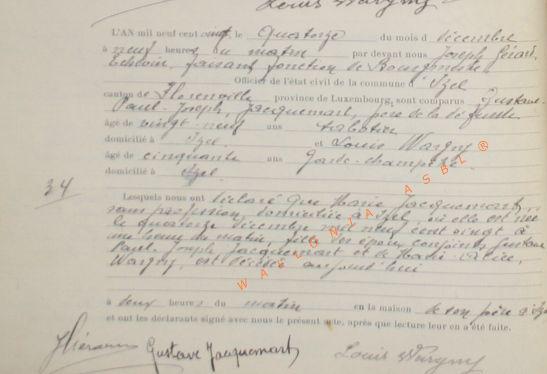 Louis Wargny
L'AN mil neuf cent vingt, le Quatorze du mois d décembre
à neuf heures du matin par devant nous Joseph Gérard,
Echevin, faisant fonction de Bourgmestre,
Officier de l'état civil de la commune d Izel
canton de Florenville province de Luxembourg, sont comparus Gustave-
Paul-Joseph, Jacquemart, père de la défunte
âgé de vingt neuf ans sabotier
domicilié à Izel et Louis Wargny
âgé de cinquante ans Garde-champêtre
domicilié à Izel.
34
Lesquels nous ont déclaré que Marie Jacquemart,
sans profession, domiciliée à Izel, où elle est née
le quatorze décembre mil neuf cent vingt à
une heure du matin, fille des époux conjoints Gustave
Paul Joseph Jacquemart et de Marie
Wargny, est décédée aujourd'hui
à deux heures du matin en la maison de son père à Izel
et ont les déclarants signé avec nous le présent acte, après que lecture leur en a été faite.
Gustave Jacquemart Louis Wargny
WALLONIA ASBL ®